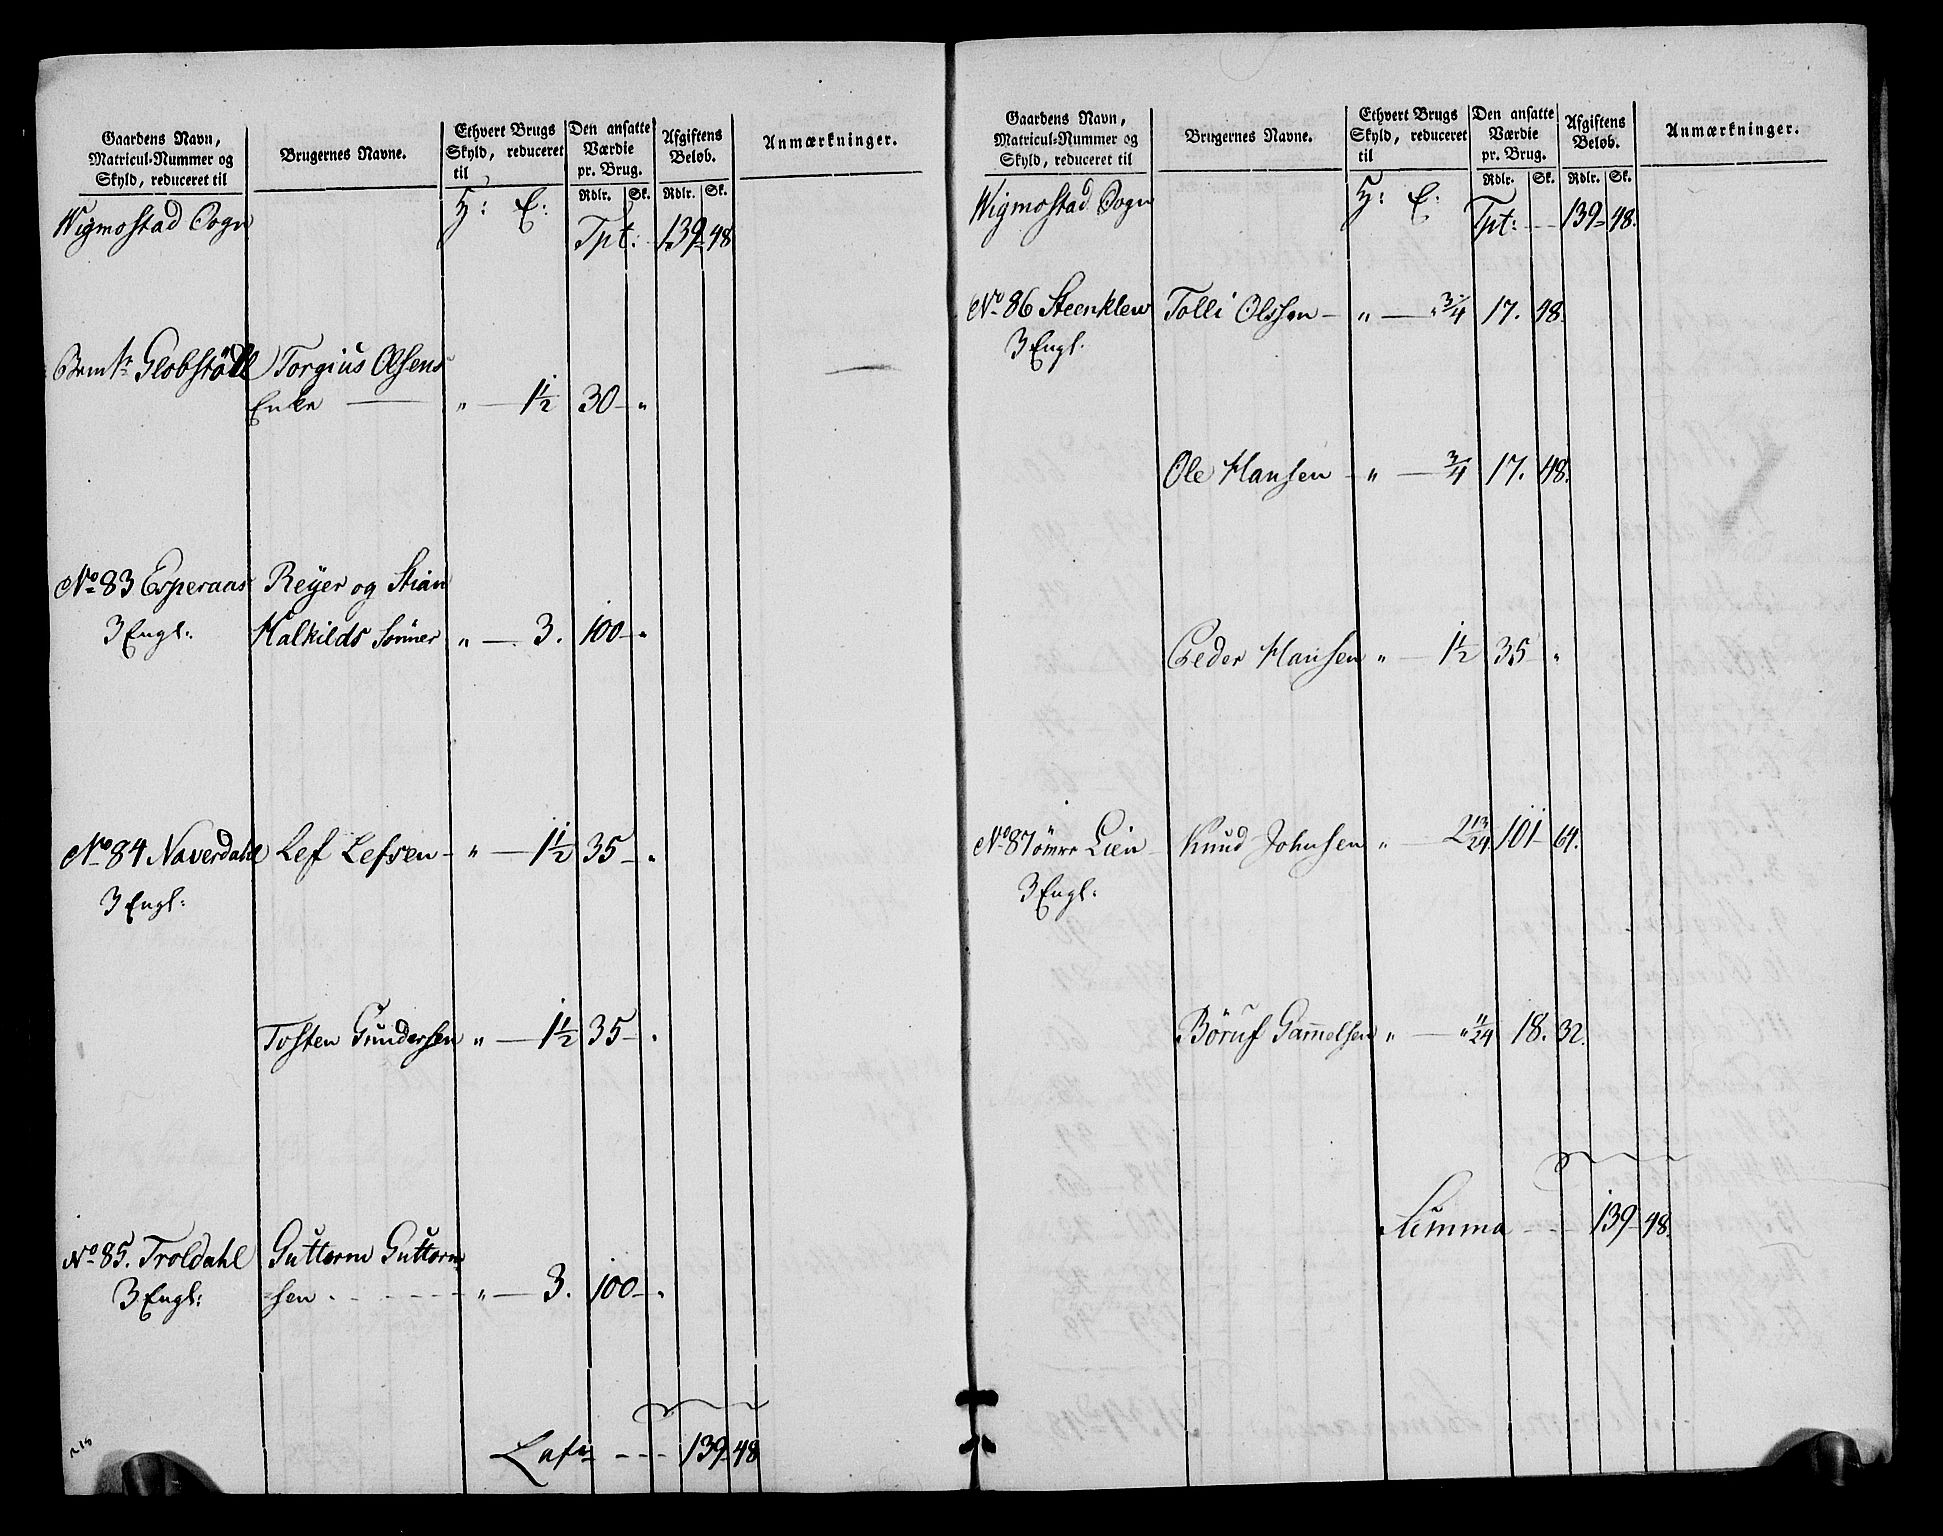 Gaardens Navn, Matricul-Nummer og Skyld, reduceret til
Brugernes Navne.
Ethvert Brugs Skyld, reduceret til
Den ansatte Værdie pr. Brug.
Afgiftens Beløb.
Anmærkninger.
Rdlr. Sk. Rdlr. Sk.
Wigmostad Sogn H: E: Tpt: 139-48
Globstöll Torgius Olsens
Enke " 1½ 30 - "
No 83 Esperaas Reÿer og Stian
3 Engl: Halkilds Sönner " 3. 100 - "
No 84 Naverdahl Lef Lefsen " 1½ 35 - "
3 Engl:
Tosten Gundersen " 1½ 35 - "
No 85. Troldahl Guttorm Guttorm
3 Engl: =sen " 3. 100 - "
Lats 139-48
Gaardens Navn, Matricul-Nummer og Skyld, reduceret til
Brugernes Navne.
Ethvert Brugs Skyld, reduceret til
Den ansatte Værdie pr. Brug.
Afgiftens Beløb.
Anmærkninger.
Rdlr. Sk. Rdlr. Sk.
Wigmostad Sogn H: E: Tpt: 139-48.
No 86 Steenklev Tolli Olssen " " 3/4 17. 48.
3 Engl.
Ole Hansen " 3/4 17. 48.
Peder Hansen " 1½ 35 "
No 87 Lien Knud Johnsen " 2 13/24 101 - 64.
3 Engl:
Böruf Gam̅elsen " " 11/24 18. 32.
Summa 139-48.